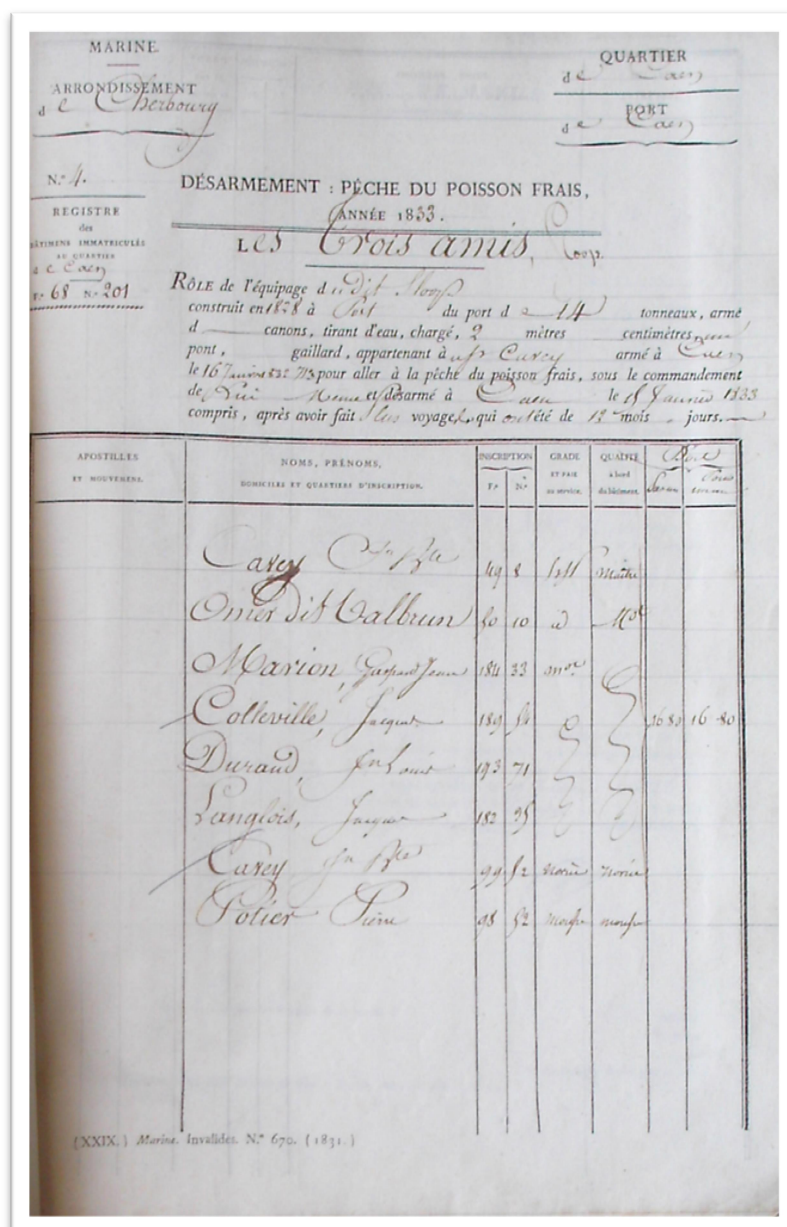 MARINE.
ARRONDISSEMENT
de Cherbourg
QUARTIER
de Caen
PORT
de Caen
N.° 4.
REGISTRE
des
BÂTIMENS IMMATRICULÉS
AU QUARTIER
de Caen
F.° 68 N.° 201
DÉSARMEMENT : PÊCHE DU POISSON FRAIS,
ANNÉE 1833.
LES Trois amis, Sloop.
RÔLE de l'équipage dudit Sloop
construit en 1828 à Port du port de 14 tonneaux, armé
d canons, tirant d'eau, chargé, 2 mètres centimètres, un
pont, gaillard, appartenant à Carey armé à Caen
le 16 pour aller à la pêche du poisson frais, sous le commandement
de Lui Meme et désarmé à Caen le 15 Janvier 1833
compris, après avoir fait plus voyages, qui ont été de 12 mois jours.
APOSTILLES
ET MOUVEMENS.
NOMS, PRÉNOMS,
DOMICILES ET QUARTIERS D'INSCRIPTION.
INSCRIPTION
F.° N.°
GRADE
ET PAIE
au service.
QUALITÉ
à bord
du bâtiment.
Carey Jn Bte 49 8 maître
Omer dit Valbrun 50 10 id Mot
Marion, Gaspard Jean 184 33 mot
Colleville, Jacques 189 54 16 80 16 80
Durand, Jn Louis 193 71
Langlois, Jacques 182 95
Carey Jn Bte 99 52 novice novice
Potier Pierre 98 52 mousse mousse
(XXIX.) Marine. Invalides. N.° 670. (1831.)